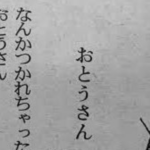 おとうさん
なんかつかれちゃった
おとうさん